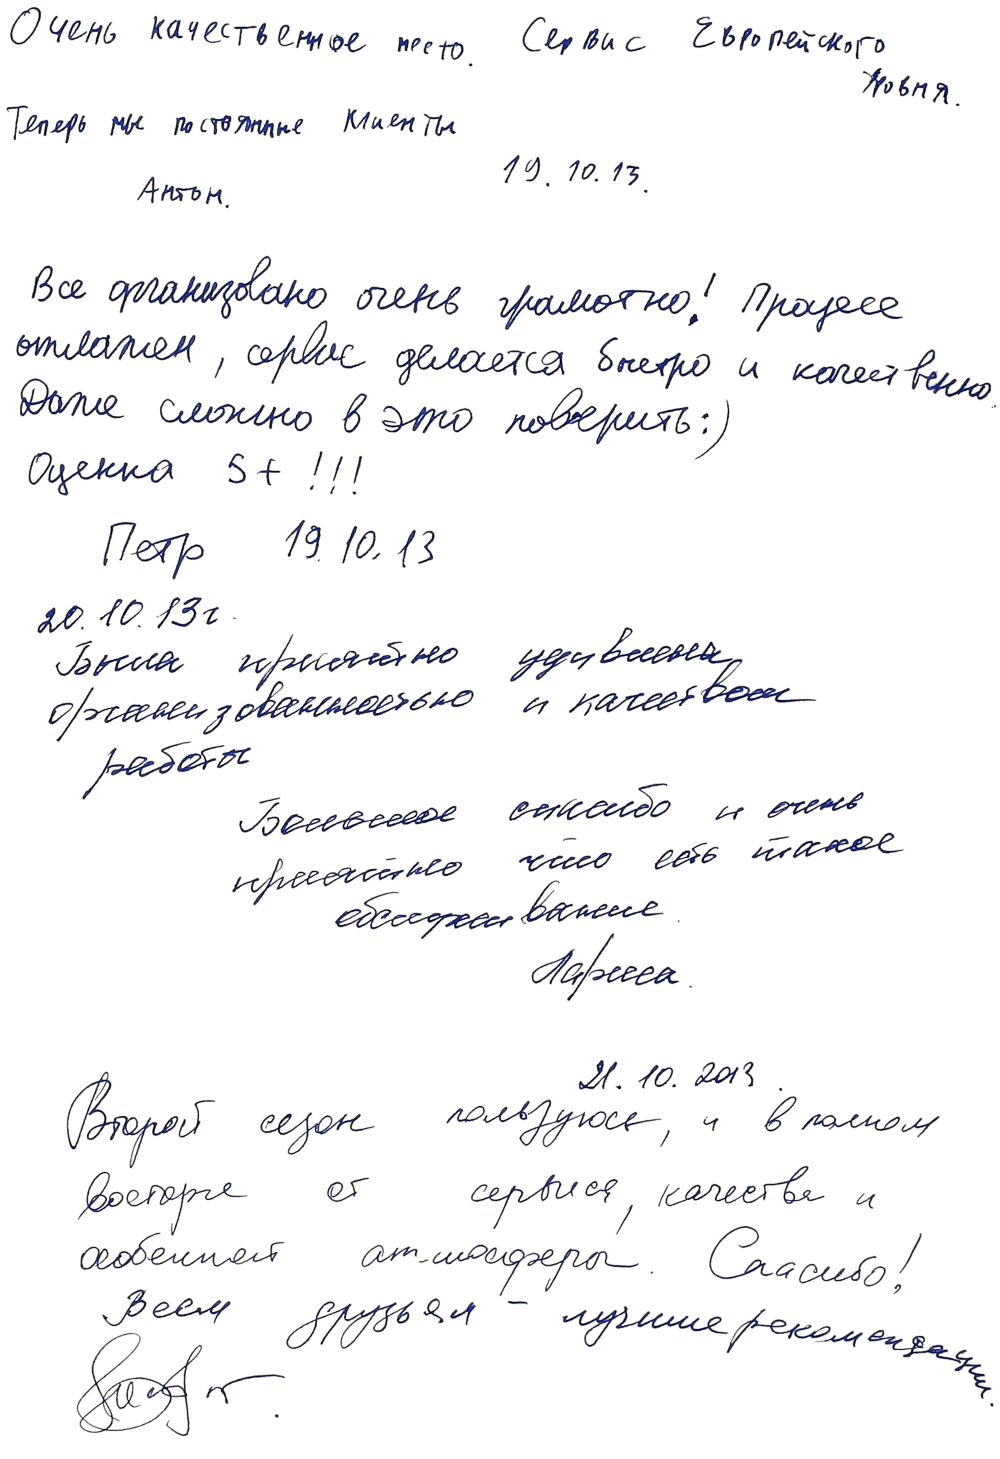 Очень качественное место. Сервис Европейского
уровня.
Теперь мы постоянные клиенты
19.10.13.
Антон.
Все организовано очень грамотно! Процесс
отлажен, сервис делается быстро и качественно.
Даже сложно в это поверить:)
Оценка 5+ !!!
Петр 19.10.13
20.10.13г.
Была приятно удивлена
организованностью и качеством
работы
Большое спасибо и очень
приятно что есть такое
обслуживание.
Лариса.
21.10.2013.
Второй сезон пользуюсь, и в полном
восторге от сервиса, качества и
особенной атмосферы. Спасибо!
Всем друзьям – лучшие рекомендации.